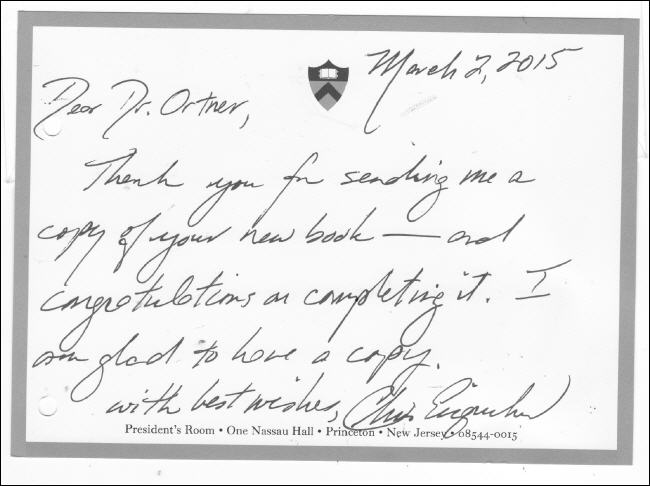 March 2, 2015
Dear Dr. Ortner,
Thank you for sending me a
copy of your new book — and
congratulations on completing it. I
am glad to have a copy.
with best wishes, Chris Eisgruber
President's Room • One Nassau Hall • Princeton • New Jersey • 08544-0015